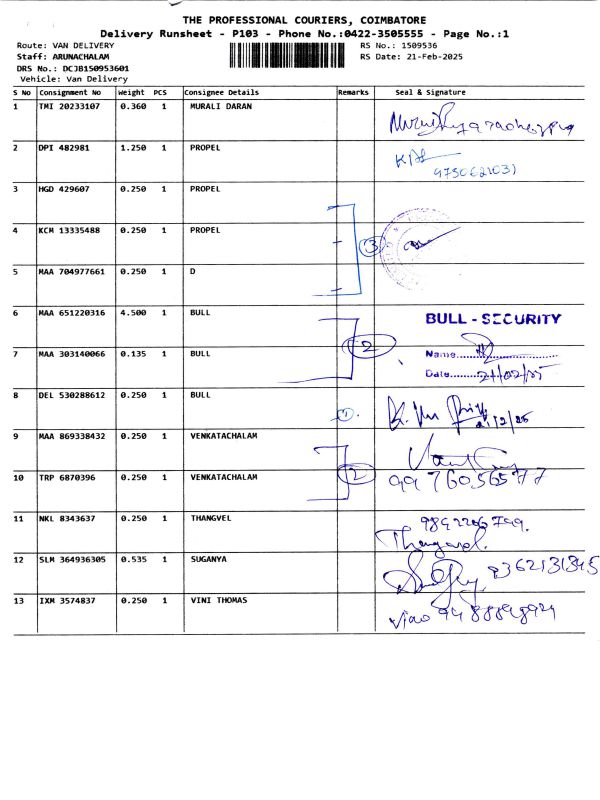 THE PROFESSIONAL COURIERS, COIMBATORE
Delivery Runsheet - P103 - Phone No.:0422-3505555 - Page No.:1
Route: VAN DELIVERY RS No.: 1509536
Staff: ARUNACHALAM RS Date: 21-Feb-2025
DRS No.: DCJB150953601
Vehicle: Van Delivery
S No Consignment No Weight PCS Consignee Details Remarks Seal & Signature
1 TMI 20233107 0.360 1 MURALI DARAN
2 DPI 482981 1.250 1 PROPEL
9750621031
3 HGD 429607 0.250 1 PROPEL
4 KCM 13335488 0.250 1 PROPEL 3
5 MAA 704977661 0.250 1 D
6 MAA 651220316 4.500 1 BULL BULL - SECURITY
2
7 MAA 303140066 0.135 1 BULL Name
Date 21/02/25
8 DEL 530288612 0.250 1 BULL 1
9 MAA 869338432 0.250 1 VENKATACHALAM
10 TRP 6870396 0.250 1 VENKATACHALAM 2
11 NKL 8343637 0.250 1 THANGVEL 9842206799.
Thangavel.
12 SLM 364936305 0.535 1 SUGANYA
13 IXM 3574837 0.250 1 VINI THOMAS